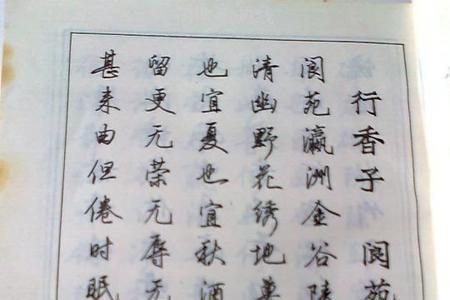 行香子 阆苑
阆苑瀛洲金谷陵
清幽野花绣地莫
也宜夏也宜秋酒
留更无荣无辱无
甚来由但倦时眠